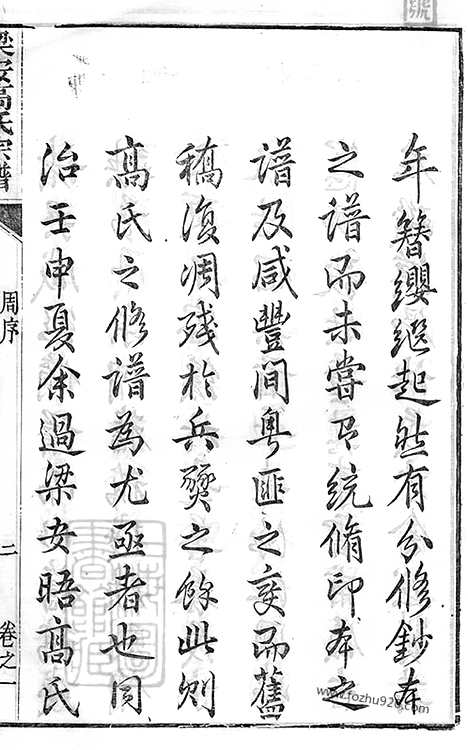 年簪纓繼起然有分修鈔本
之譜而未嘗有統脩印本之
譜及咸豐间粤匪之变而舊
稿復凋残於兵燹之餘此则
髙氏之修譜為尤亟者也同
治壬申夏余過梁安晤髙氏
梁安高氏宗譜
周序
二
卷之一
www.fozhu920.com